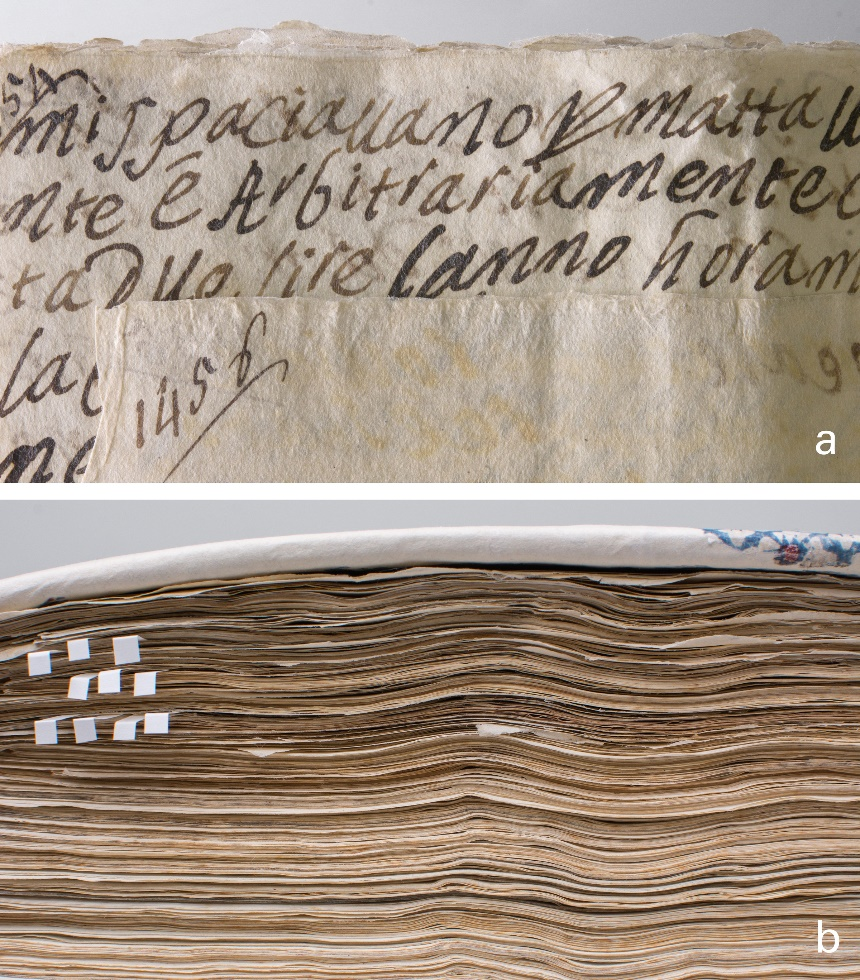 mi spaciauano P matta
nte è Arbitrariamente
ta Duo lire lanno horam
la
1456
ne
a
b